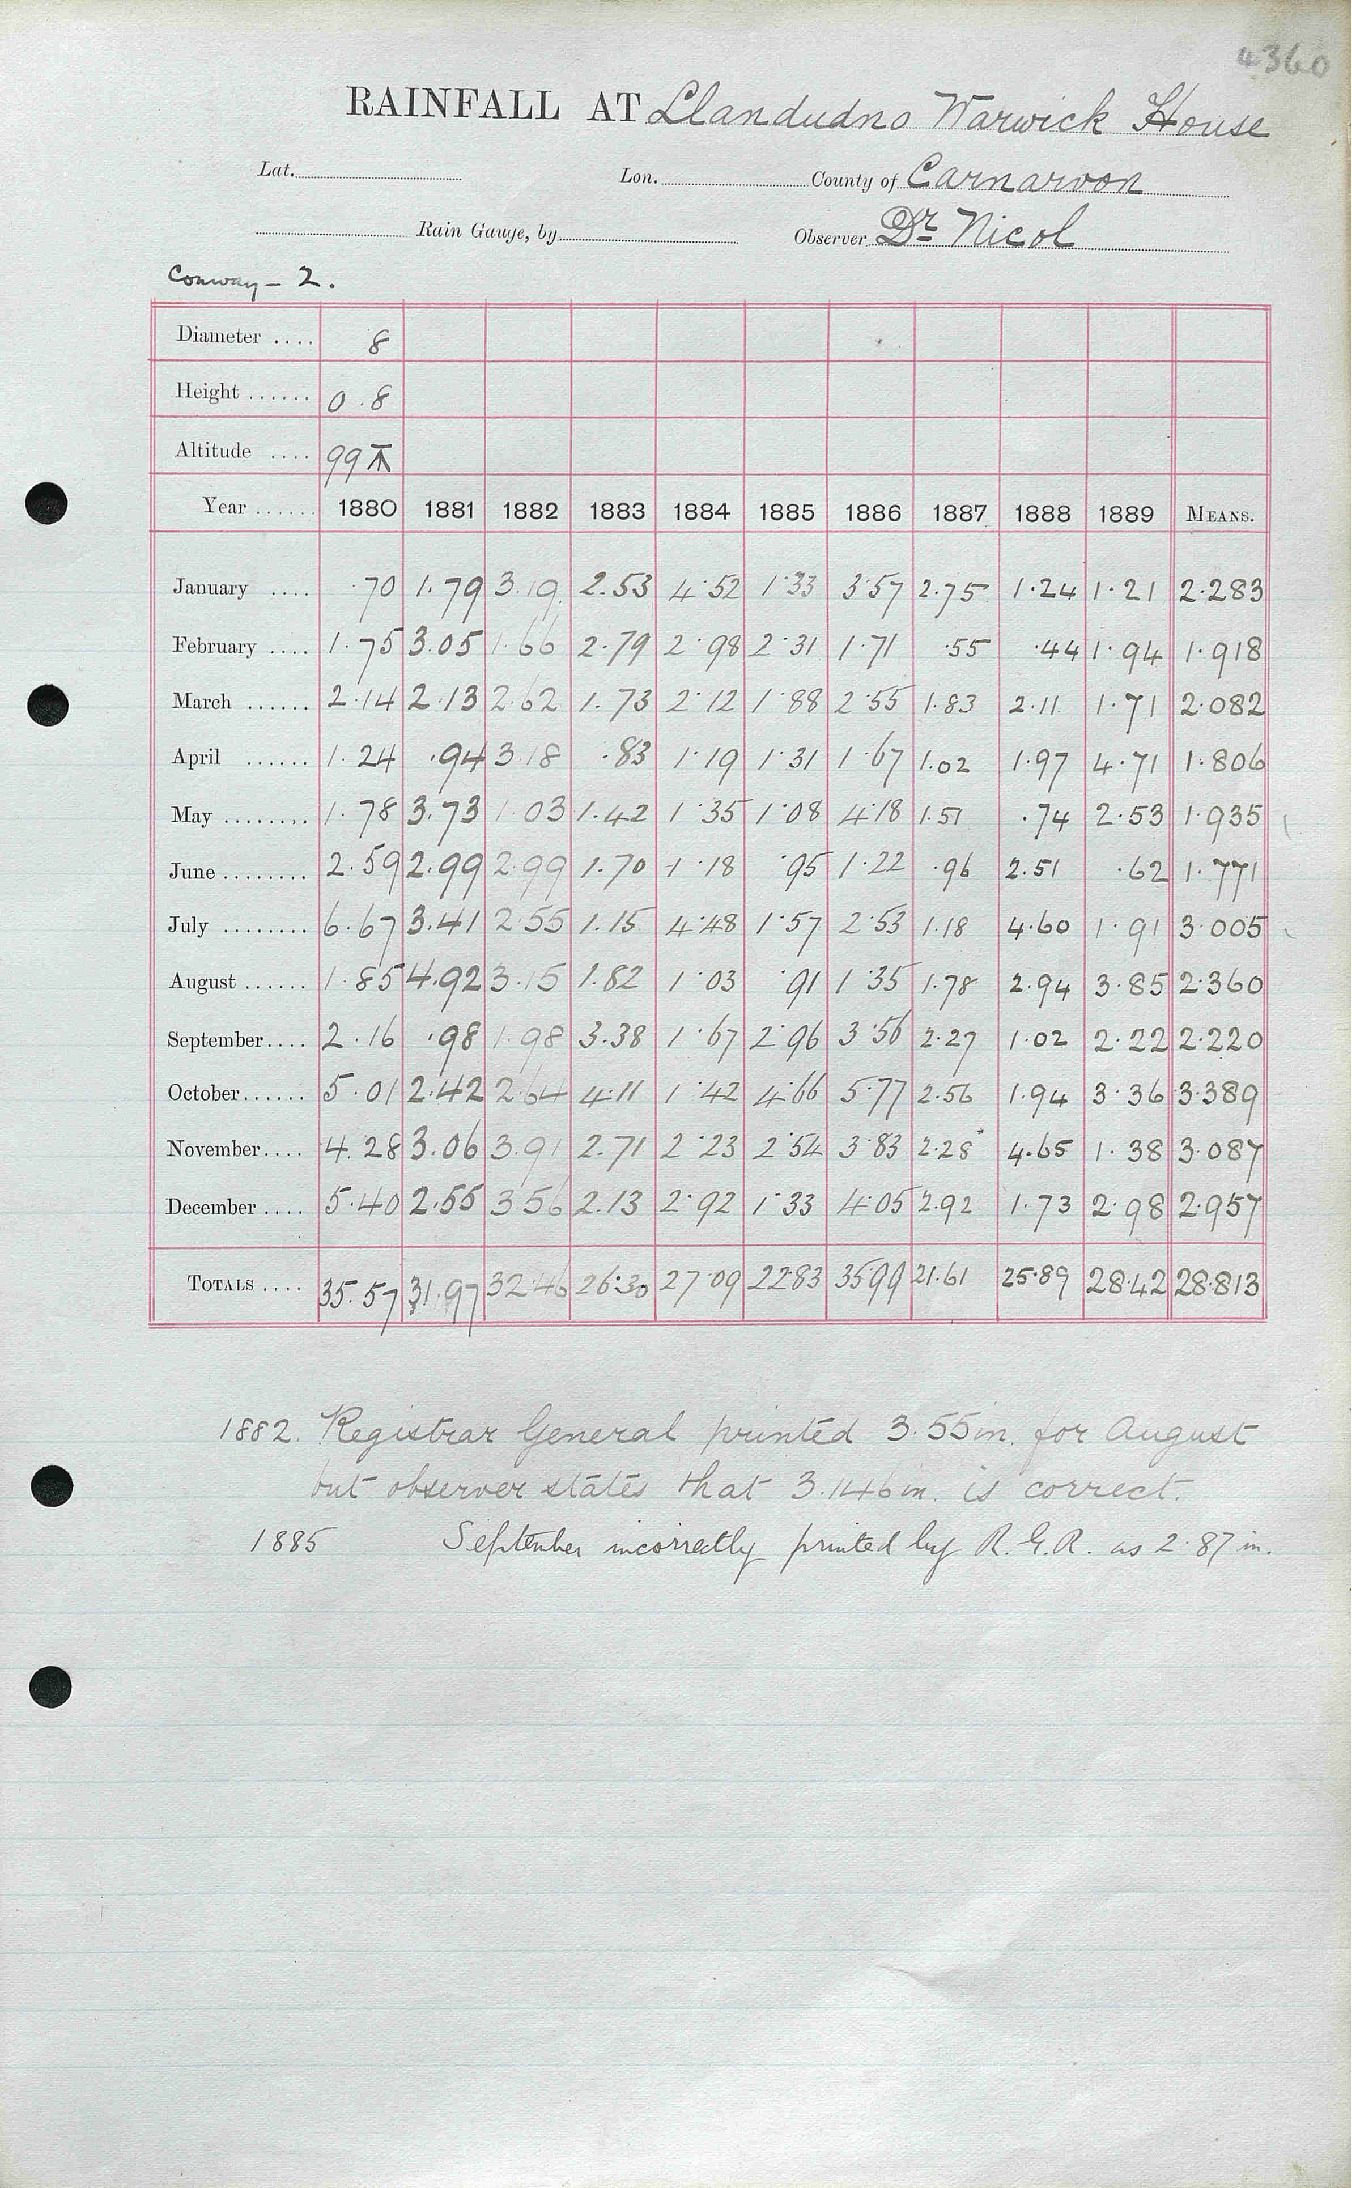 4360
RAINFALL AT Llandudno Warwick House
Lat. Lon. County of Carnarvon
Rain Gauge, by Observer Dr Nicol
Conway - 2.
Diameter .... 8
Height ...... 0.8
Altitude .... 99
Year ...... 1880 1881 1882 1883 1884 1885 1886 1887 1888 1889 MEANS.
January .... .70 1.79 3.19 2.53 4.52 1.33 3.57 2.75 1.24 1.21 2.283
February .... 1.75 3.05 1.66 2.79 2.98 2.31 1.71 .55 .44 1.94 1.918
March ...... 2.14 2.13 2.62 1.73 2.12 1.88 2.55 1.83 2.11 1.71 2.082
April ...... 1.24 .94 3.18 .83 1.19 1.31 1.67 1.02 1.97 4.71 1.806
May ........ 1.78 3.73 1.03 1.42 1.35 1.08 4.18 1.51 .74 2.53 1.935
June ........ 2.59 2.99 2.99 1.70 1.18 .95 1.22 .96 2.51 .62 1.771
July ........ 6.67 3.41 2.55 1.15 4.48 1.57 2.53 1.18 4.60 1.91 3.005
August ...... 1.85 4.92 3.15 1.82 1.03 .91 1.35 1.78 2.94 3.85 2.360
September.... 2.16 .98 1.98 3.38 1.67 2.96 3.56 2.27 1.02 2.22 2.220
October...... 5.01 2.42 2.64 4.11 1.42 4.66 5.77 2.56 1.94 3.36 3.389
November.... 4.28 3.06 3.91 2.71 2.23 2.54 3.83 2.28 4.65 1.38 3.087
December .... 5.40 2.55 3.56 2.13 2.92 1.33 4.05 2.92 1.73 2.98 2.957
TOTALS .... 35.57 31.97 32.46 26.30 27.09 22.83 35.99 21.61 25.89 28.42 28.813
1882. Registrar General printed 3.55 in. for August
but observer states that 3.146 in. is correct.
1885 September incorrectly printed by R.G.R. as 2.87 in.